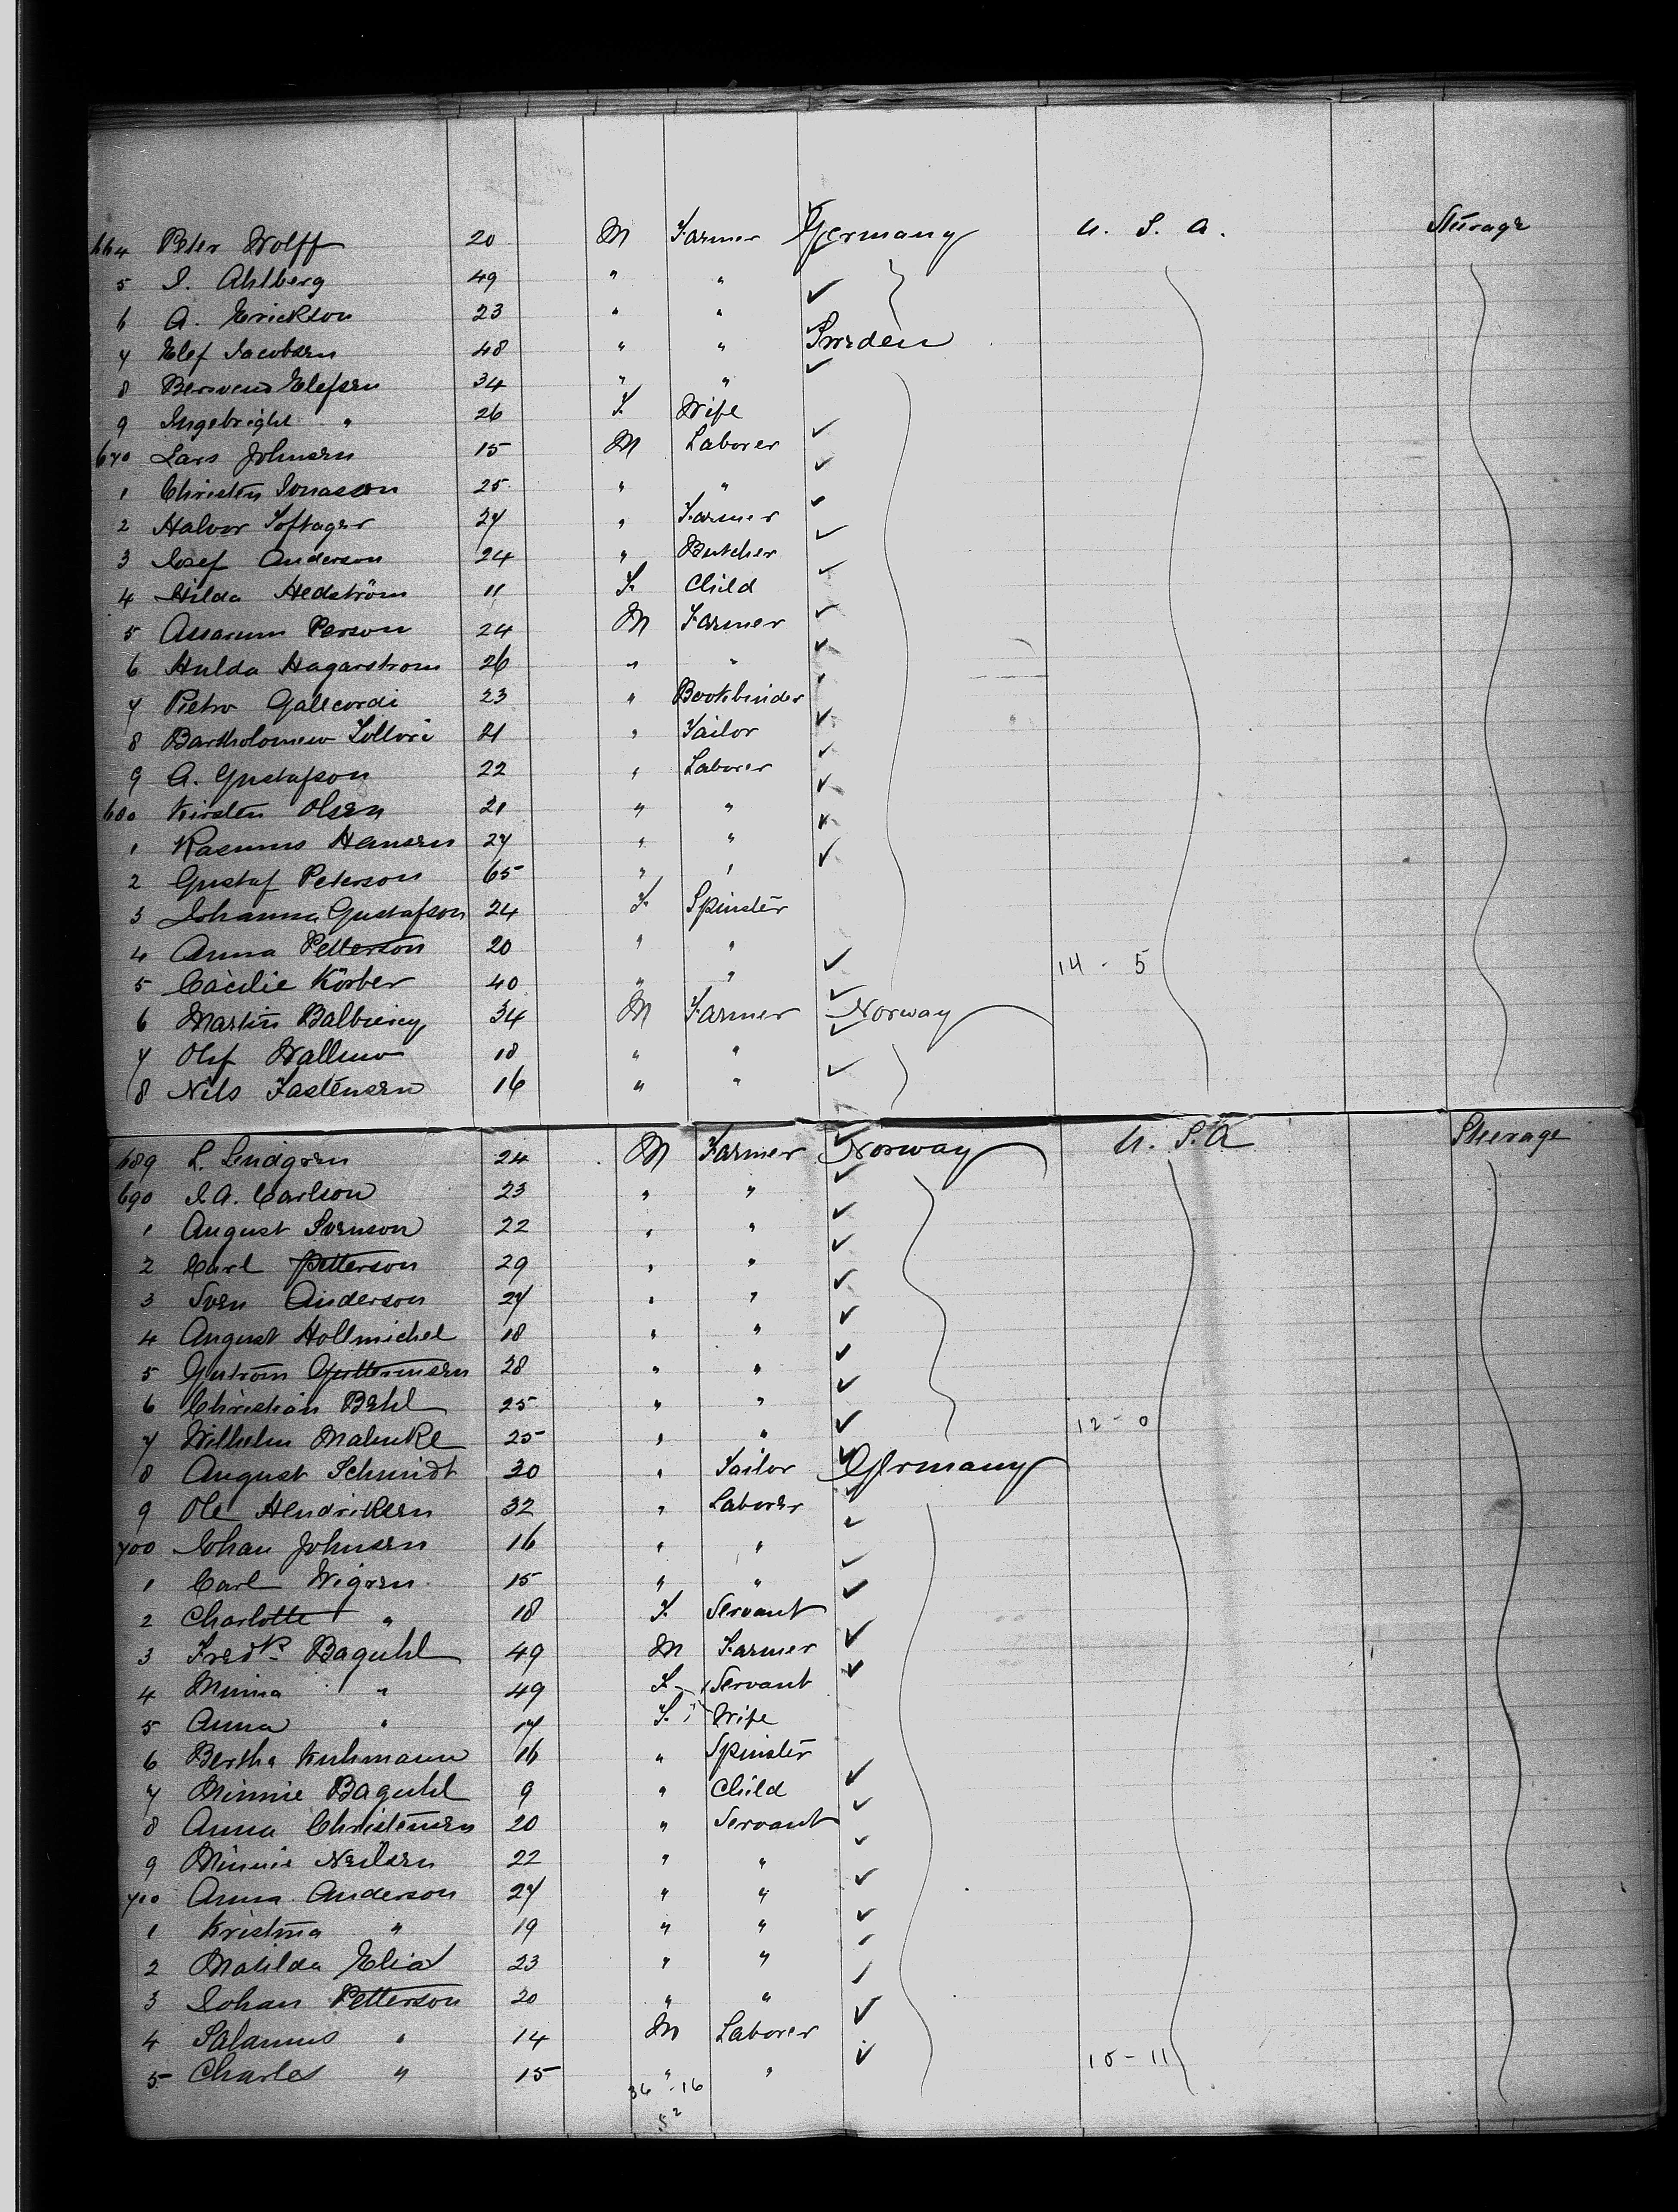 664 Peter Wolff 20 M Farmer Germany U. S. A. Steerage
5 I. Ahlberg 49 " "
6 A. Erickson 23 " "
7 Elef Jacobsen 48 " " Sweden
8 Bersvend Elefsen 34 " "
9 Ingebright " 26 F. Wife
670 Lars Johnsen 15 M Laborer
1 Christen Jonasson 25 " "
2 Halvor Toftager 27 " Farmer
3 Josef Anderson 24 " Butcher
4 Hilda Hedström 11 F. Child
5 Assarum Person 24 M Farmer
6 Hulda Hagarstrom 26 " "
7 Pietro Gallcordi 23 " Bookbinder
8 Bartholomew Tollori 21 " Tailor
9 A. Gustafson 22 " Laborer
680 Kirsten Olsen 21 " "
1 Rasmus Hansen 27 " "
2 Gustaf Peterson 65 " "
3 Johanna Gustafson 24 F. Spinster
4 Anna Petterson 20 " "
5 Cäcilie Körber 40 " " 14 - 5
6 Martin 34 M Farmer Norway
7 Olef Wallmo 18 " "
8 Nils Fastensen 16 " "
689 L. Lindgren 24 M Farmer Norway U. S. A Steerage
690 I. A. Carlson 23 " "
1 August Svenson 22 " "
2 Carl Petterson 29 " "
3 Sven Anderson 27 " "
4 August Hollmichel 18 " "
5 Guttormsen 28 " "
6 Christian Behl 25 " "
7 Wilhelm Mahnke 25 " " 12 - 0
8 August Schmidt 30 " Tailor Germany
9 Ole Hendriksen 32 " Laborer
700 Johan Johnsen 16 " "
1 Carl Wigren 15 " "
2 Charlotte " 18 F. Servant
3 Fredk Baguhl 49 M Farmer
4 Minna " 49 F. Servant
5 Anna " 17 F. Wife
6 Bertha Kuhmann 16 " Spinster
7 Minnie Baguhl 9 " Child
8 Anna Christensen 20 " Servant
9 Minnie Neilsen 22 " "
710 Anna Anderson 27 " "
1 Kristina " 19 " "
2 Matilda Elia 23 " "
3 Johan Petterson 20 " "
4 Salamus " 14 M Laborer
5 Charles " 15 " " 10 - 11
36 - 16
52